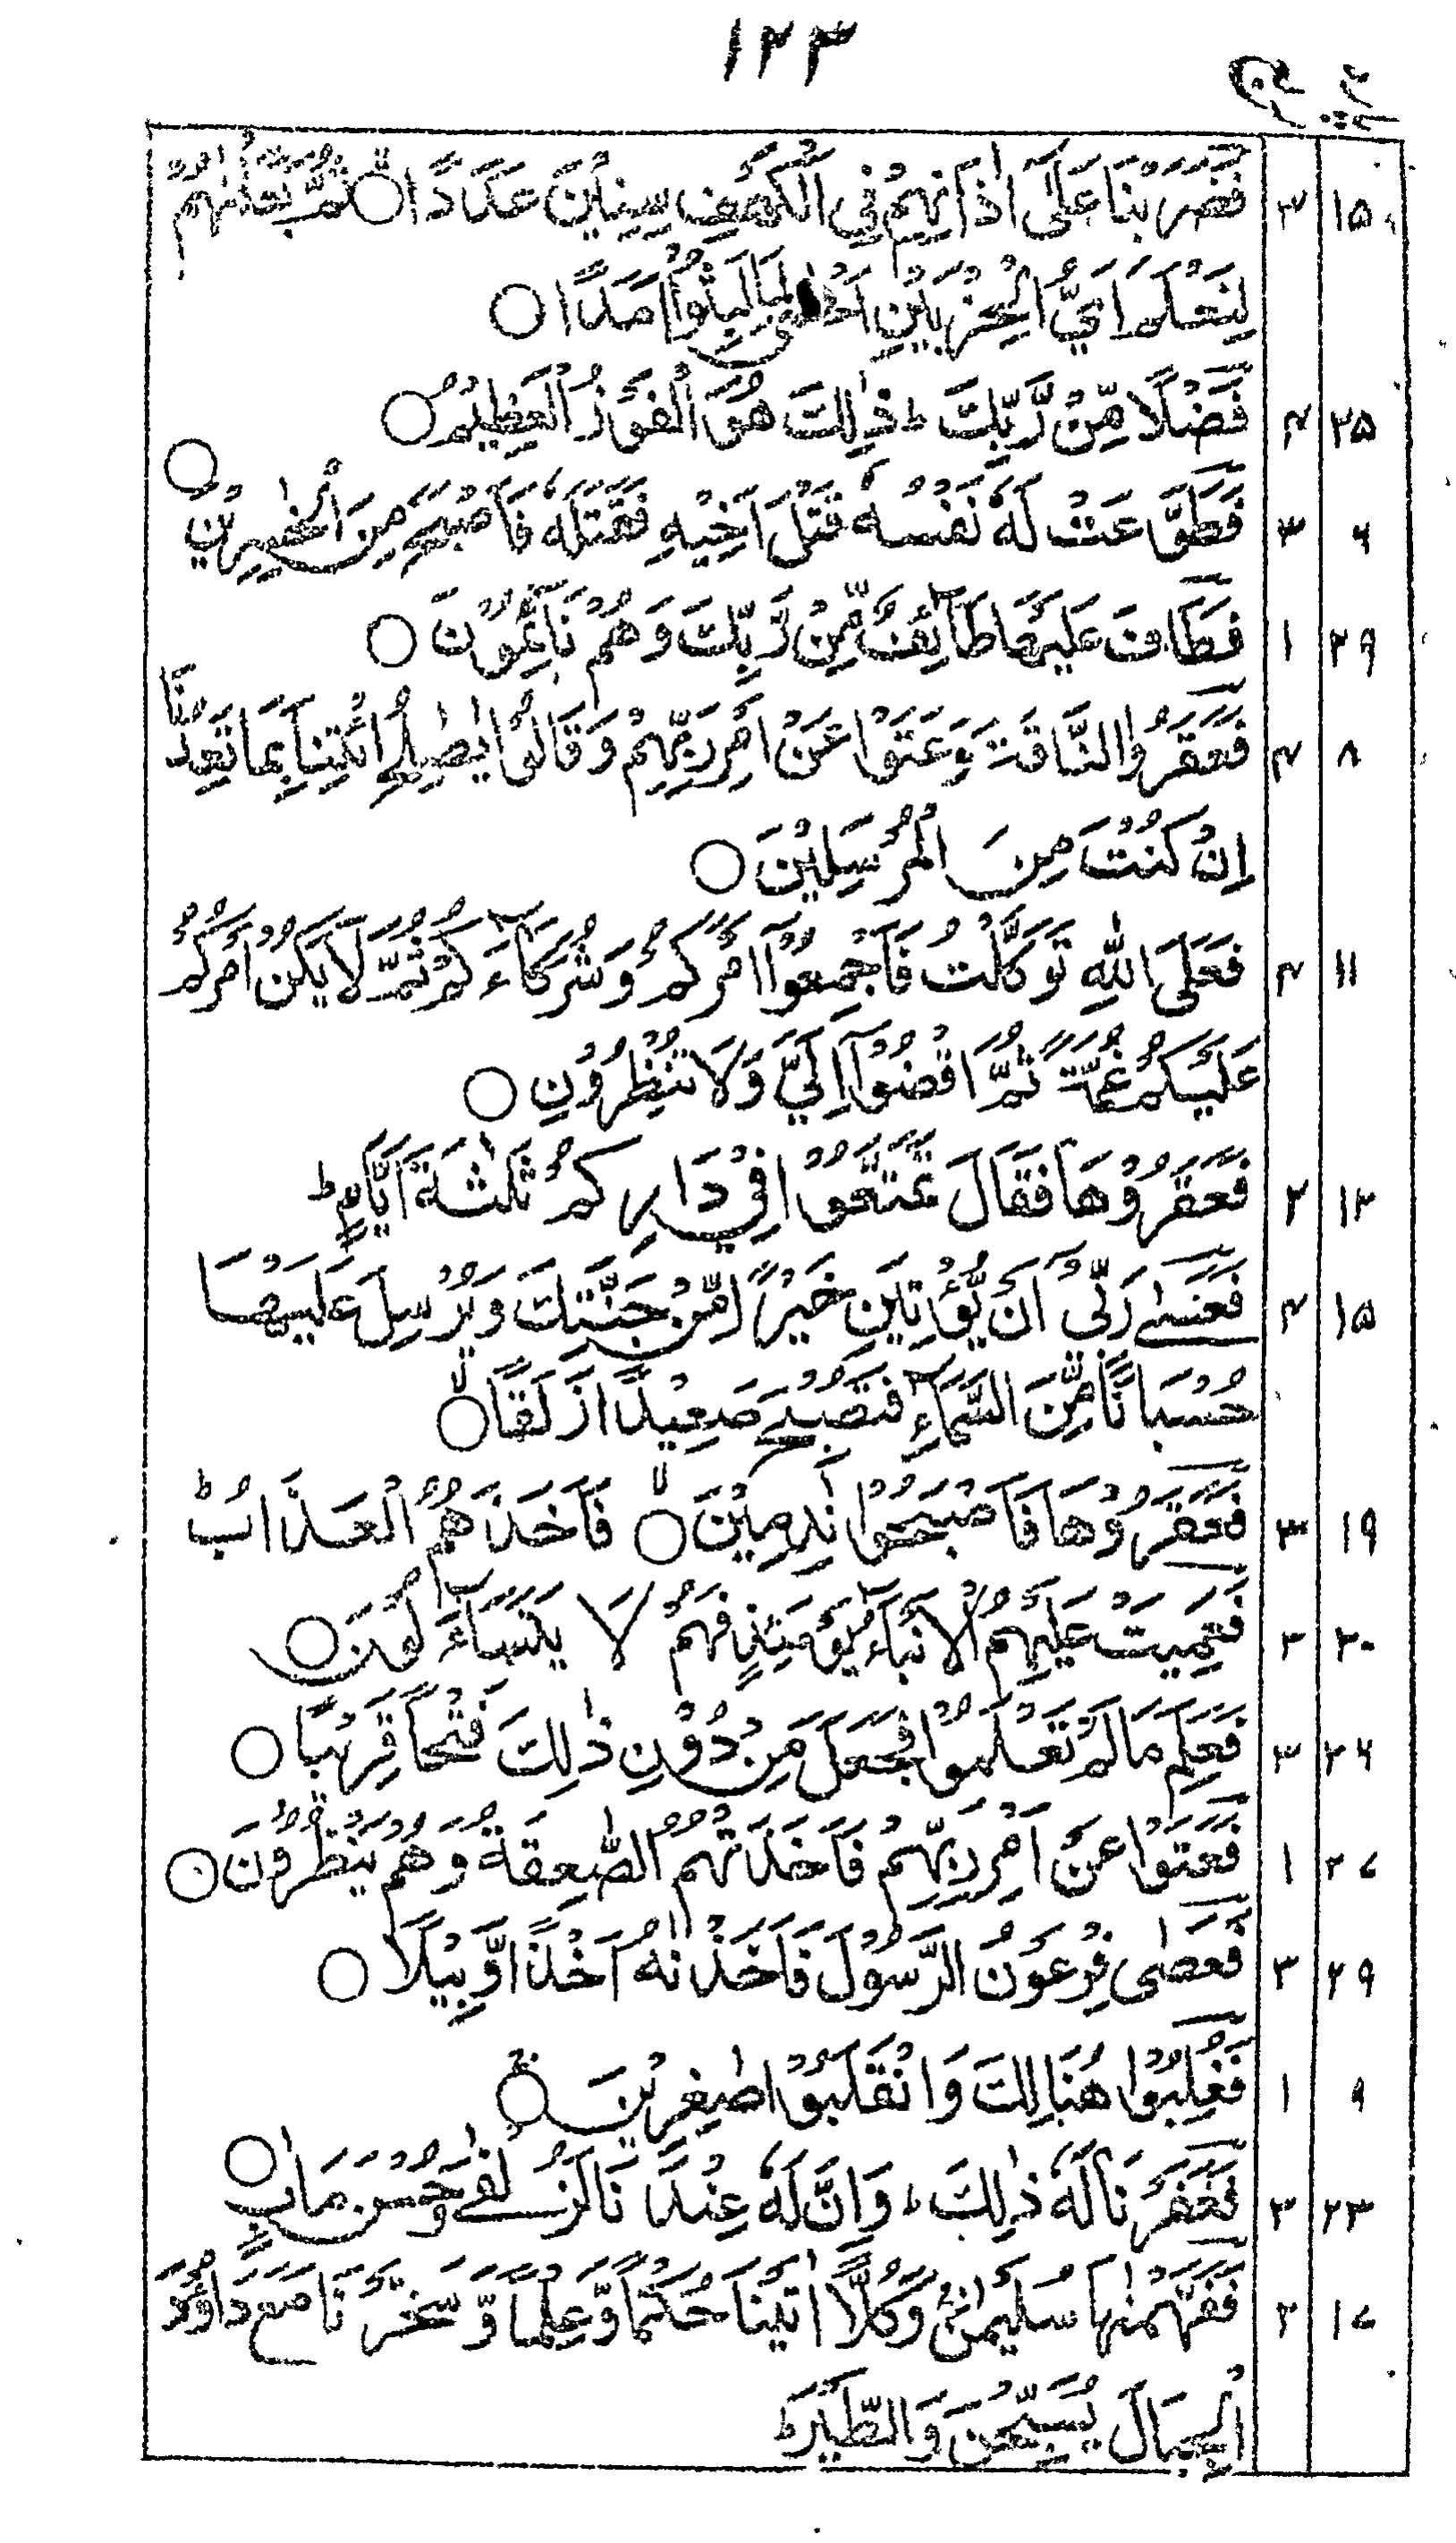 ۱۲۳
ع
۱۵ ۳ فَضَرَبْنَا عَلٰٓى اٰذَانِهِمْ فِى الْكَهْفِ سِنِيْنَ عَدَدًا ۙ○ ثُمَّ بَعَثْنٰهُمْ
لِنَعْلَمَ اَىُّ الْحِزْبَيْنِ اَحْصٰى لِمَا لَبِثُوْۤا اَمَدًا ○
۲۵ ۴ فَضْلًا مِّنْ رَّبِّكَ ؕ ذٰلِكَ هُوَ الْفَوْزُ الْعَظِيْمُ ○
۶ ۳ فَطَوَّعَتْ لَهٗ نَفْسُهٗ قَتْلَ اَخِيْهِ فَقَتَلَهٗ فَاَصْبَحَ مِنَ الْخٰسِرِيْنَ ○
۲۹ ۱ فَطَافَ عَلَيْهَا طَآئِفٌ مِّنْ رَّبِّكَ وَهُمْ نَآئِمُوْنَ ○
۸ ۴ فَعَقَرُوا النَّاقَةَ وَعَتَوْا عَنْ اَمْرِ رَبِّهِمْ وَقَالُوْا يٰصٰلِحُ ائْتِنَا بِمَا تَعِدُنَاۤ
اِنْ كُنْتَ مِنَ الْمُرْسَلِيْنَ ○
۱۱ ۴ فَعَلَى اللّٰهِ تَوَكَّلْتُ فَاَجْمِعُوْۤا اَمْرَكُمْ وَشُرَكَآءَكُمْ ثُمَّ لَا يَكُنْ اَمْرُكُمْ
عَلَيْكُمْ غُمَّةً ثُمَّ اقْضُوْۤا اِلَىَّ وَلَا تُنْظِرُوْنِ ○
۱۲ ۲ فَعَقَرُوْهَا فَقَالَ تَمَتَّعُوْا فِىْ دَارِكُمْ ثَلٰثَةَ اَيَّامٍ ؕ
۱۵ ۴ فَعَسٰى رَبِّىْۤ اَنْ يُّؤْتِيَنِ خَيْرًا مِّنْ جَنَّتِكَ وَيُرْسِلَ عَلَيْهَا
حُسْبَانًا مِّنَ السَّمَآءِ فَتُصْبِحَ صَعِيْدًا زَلَقًا ۙ○
۱۹ ۳ فَعَقَرُوْهَا فَاَصْبَحُوْا نٰدِمِيْنَ ۙ○ فَاَخَذَهُمُ الْعَذَابُ ؕ
۲۰ ۳ فَعَمِيَتْ عَلَيْهِمُ الْاَنْۢبَآءُ يَوْمَئِذٍ فَهُمْ لَا يَتَسَآءَلُوْنَ ○
۲۶ ۳ فَعَلِمَ مَا لَمْ تَعْلَمُوْا فَجَعَلَ مِنْ دُوْنِ ذٰلِكَ فَتْحًا قَرِيْبًا ○
۲۷ ۱ فَعَتَوْا عَنْ اَمْرِ رَبِّهِمْ فَاَخَذَتْهُمُ الصّٰعِقَةُ وَهُمْ يَنْظُرُوْنَ ○
۲۹ ۳ فَعَصٰى فِرْعَوْنُ الرَّسُوْلَ فَاَخَذْنٰهُ اَخْذًا وَّبِيْلًا ○
۹ ۱ فَغُلِبُوْا هُنَالِكَ وَانْقَلَبُوْا صٰغِرِيْنَ ○
۲۳ ۳ فَغَفَرْنَا لَهٗ ذٰلِكَ ؕ وَاِنَّ لَهٗ عِنْدَنَا لَزُلْفٰى وَحُسْنَ مَاٰبٍ ○
۱۷ ۲ فَفَهَّمْنٰهَا سُلَيْمٰنَ ۚ وَكُلًّا اٰتَيْنَا حُكْمًا وَّعِلْمًا وَّسَخَّرْنَا مَعَ دَاوٗدَ
الْجِبَالَ يُسَبِّحْنَ وَالطَّيْرَ ؕ